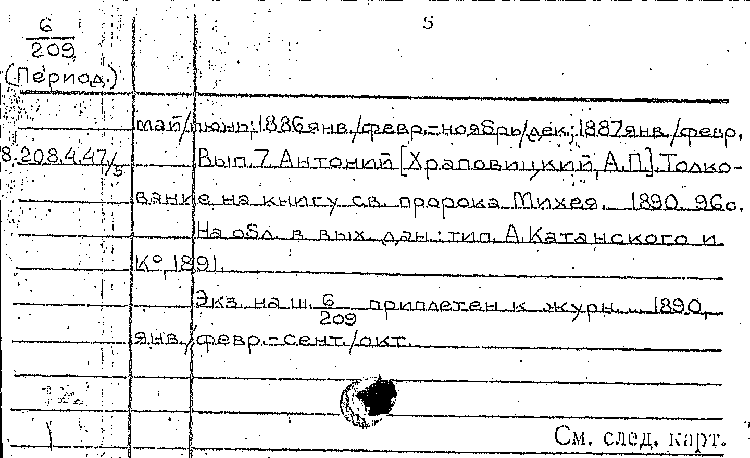 5
6
209
(Период.)
май/июнь; 1886 янв./февр.-ноябрь/дек.; 1887 янв./февр.
8.208.4.47/5 Вып. 7. Антоний [Храповицкий, А.П]. Толко-
вание на книгу св. пророка Михея. 1890. 96с.
На обл. в вых. дан.: тип. А. Катанского и
К°, 1891.
Экз. на ш. 6/209 приплетен к журн. ... 1890,
янв./февр.-сент./окт.
См. след. карт.